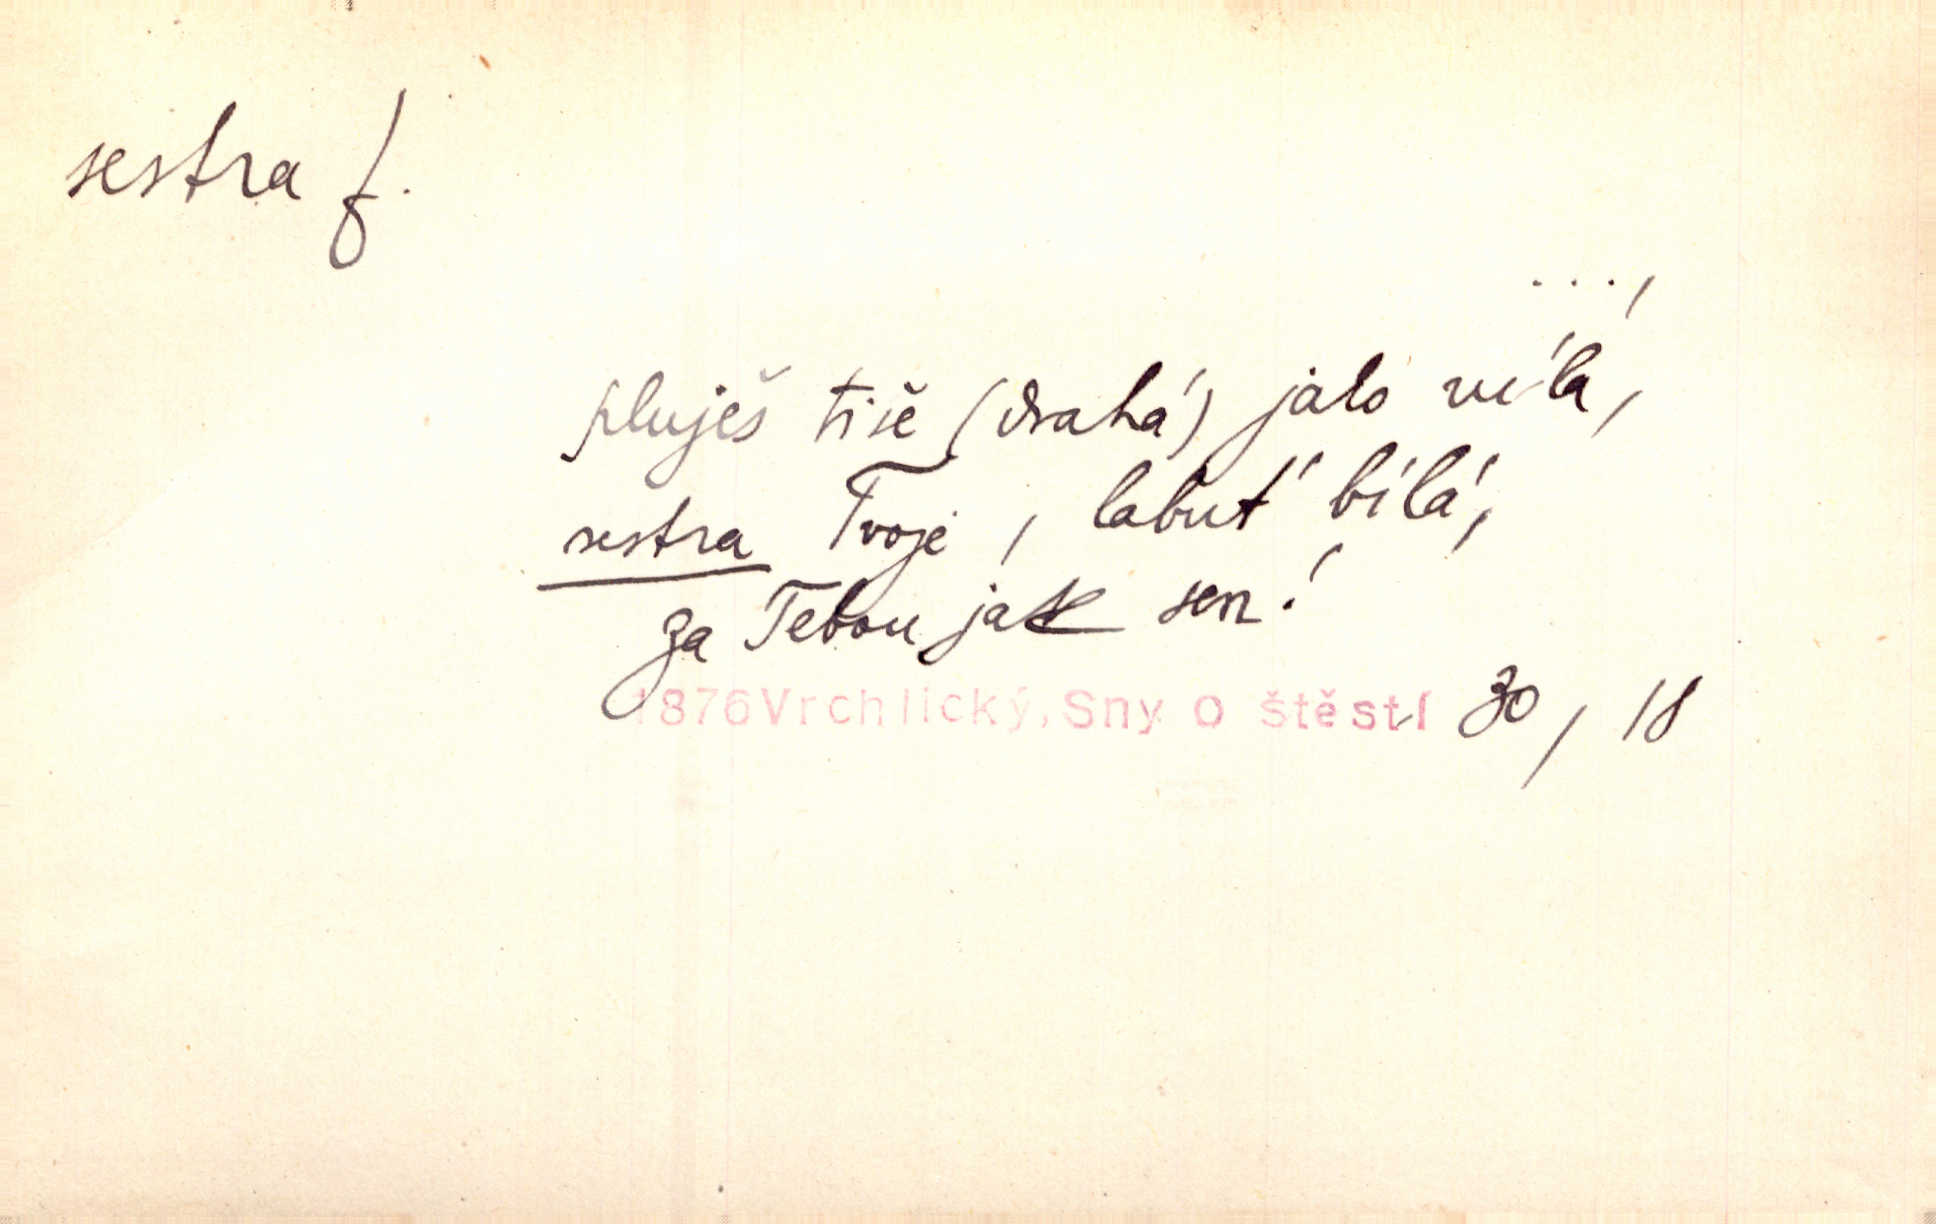 sestra f.
...,
pluješ tiše (drahá) jako víla,
sestra Tvoje, labuť bílá,
za Tebou jak sen!
1876 Vrchlický, Sny o štěstí 30, 18